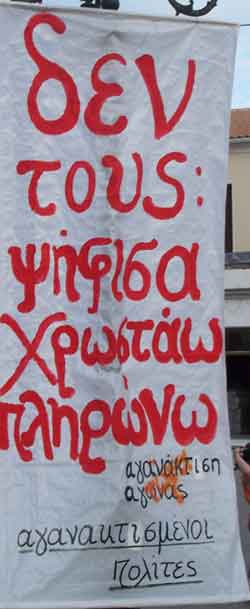 δεν
τους:
ψήφισα
χρωστάω
πληρώνω
αγανάκτιση
αγώνας
αγανακτισμενοι
πολίτες